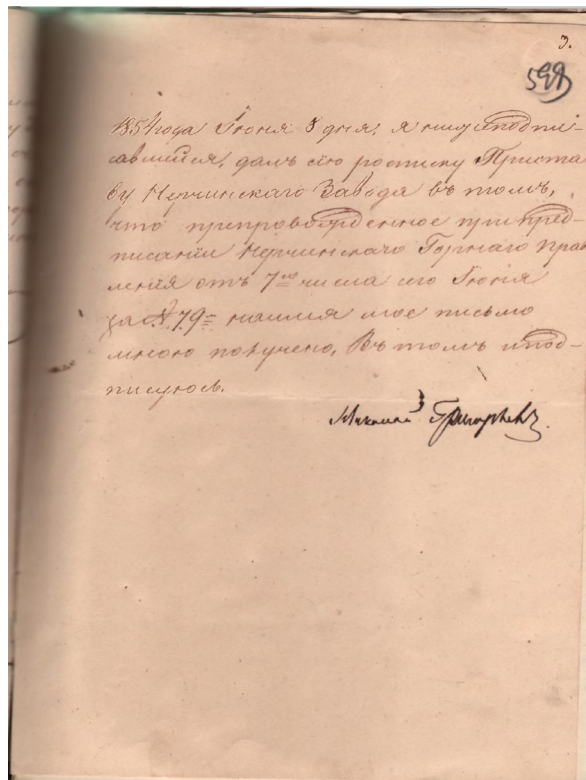 3.
599
1854 года Іюня 8 дня, я ниже подпи-
савшийся, далъ сію росписку Приста
ву Нерчинскаго Завода въ томъ,
что препровожденное при пред-
писаніи Нерчинскаго Горнаго Прав
ленія отъ 7го числа сего Іюня
за № 79 на имя мое письмо
мною получено, Въ томъ и под-
писуюсь.
Николай Григорьевъ